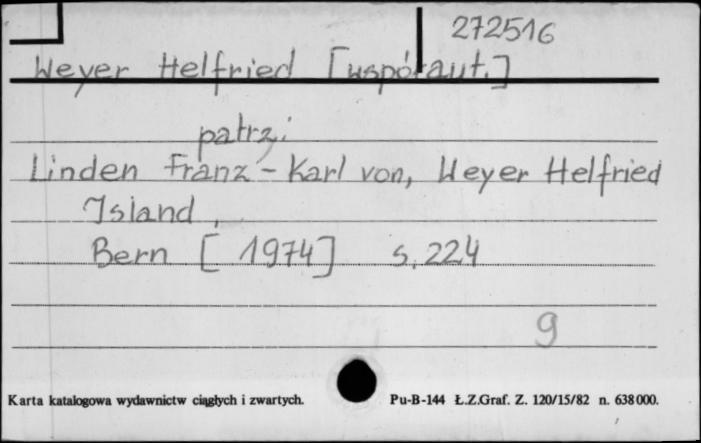 272516
Weyer Helfried [współaut.]
patrz:
Linden Franz-Karl von, Weyer Helfried
Island.
Bern [1974] s. 224
g
Karta katalogowa wydawnictw ciągłych i zwartych. Pu-B-144 Ł.Z.Graf. Z. 120/15/82 n. 638000.